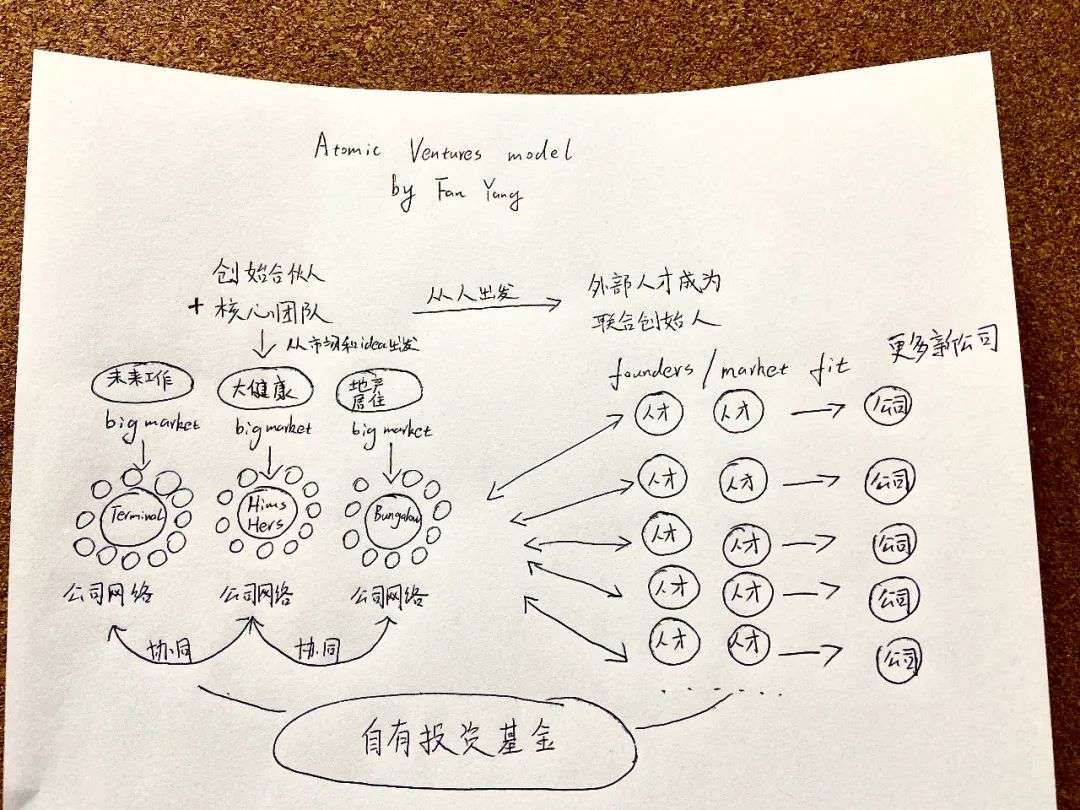 Atomic Ventures model
by Fan Yang
创始合伙人
+ 核心团队
从人出发
外部人才成为
联合创始人
从市场和idea出发
更多新公司
founders / market fit
未来工作
大健康
地产
居住
big market
big market
big market
Terminal
Hims
Hers
Bungalow
公司网络
公司网络
公司网络
协同
协同
人才 人才 公司
人才 人才 公司
人才 人才 公司
人才 人才 公司
人才 人才 公司
......
自有投资基金